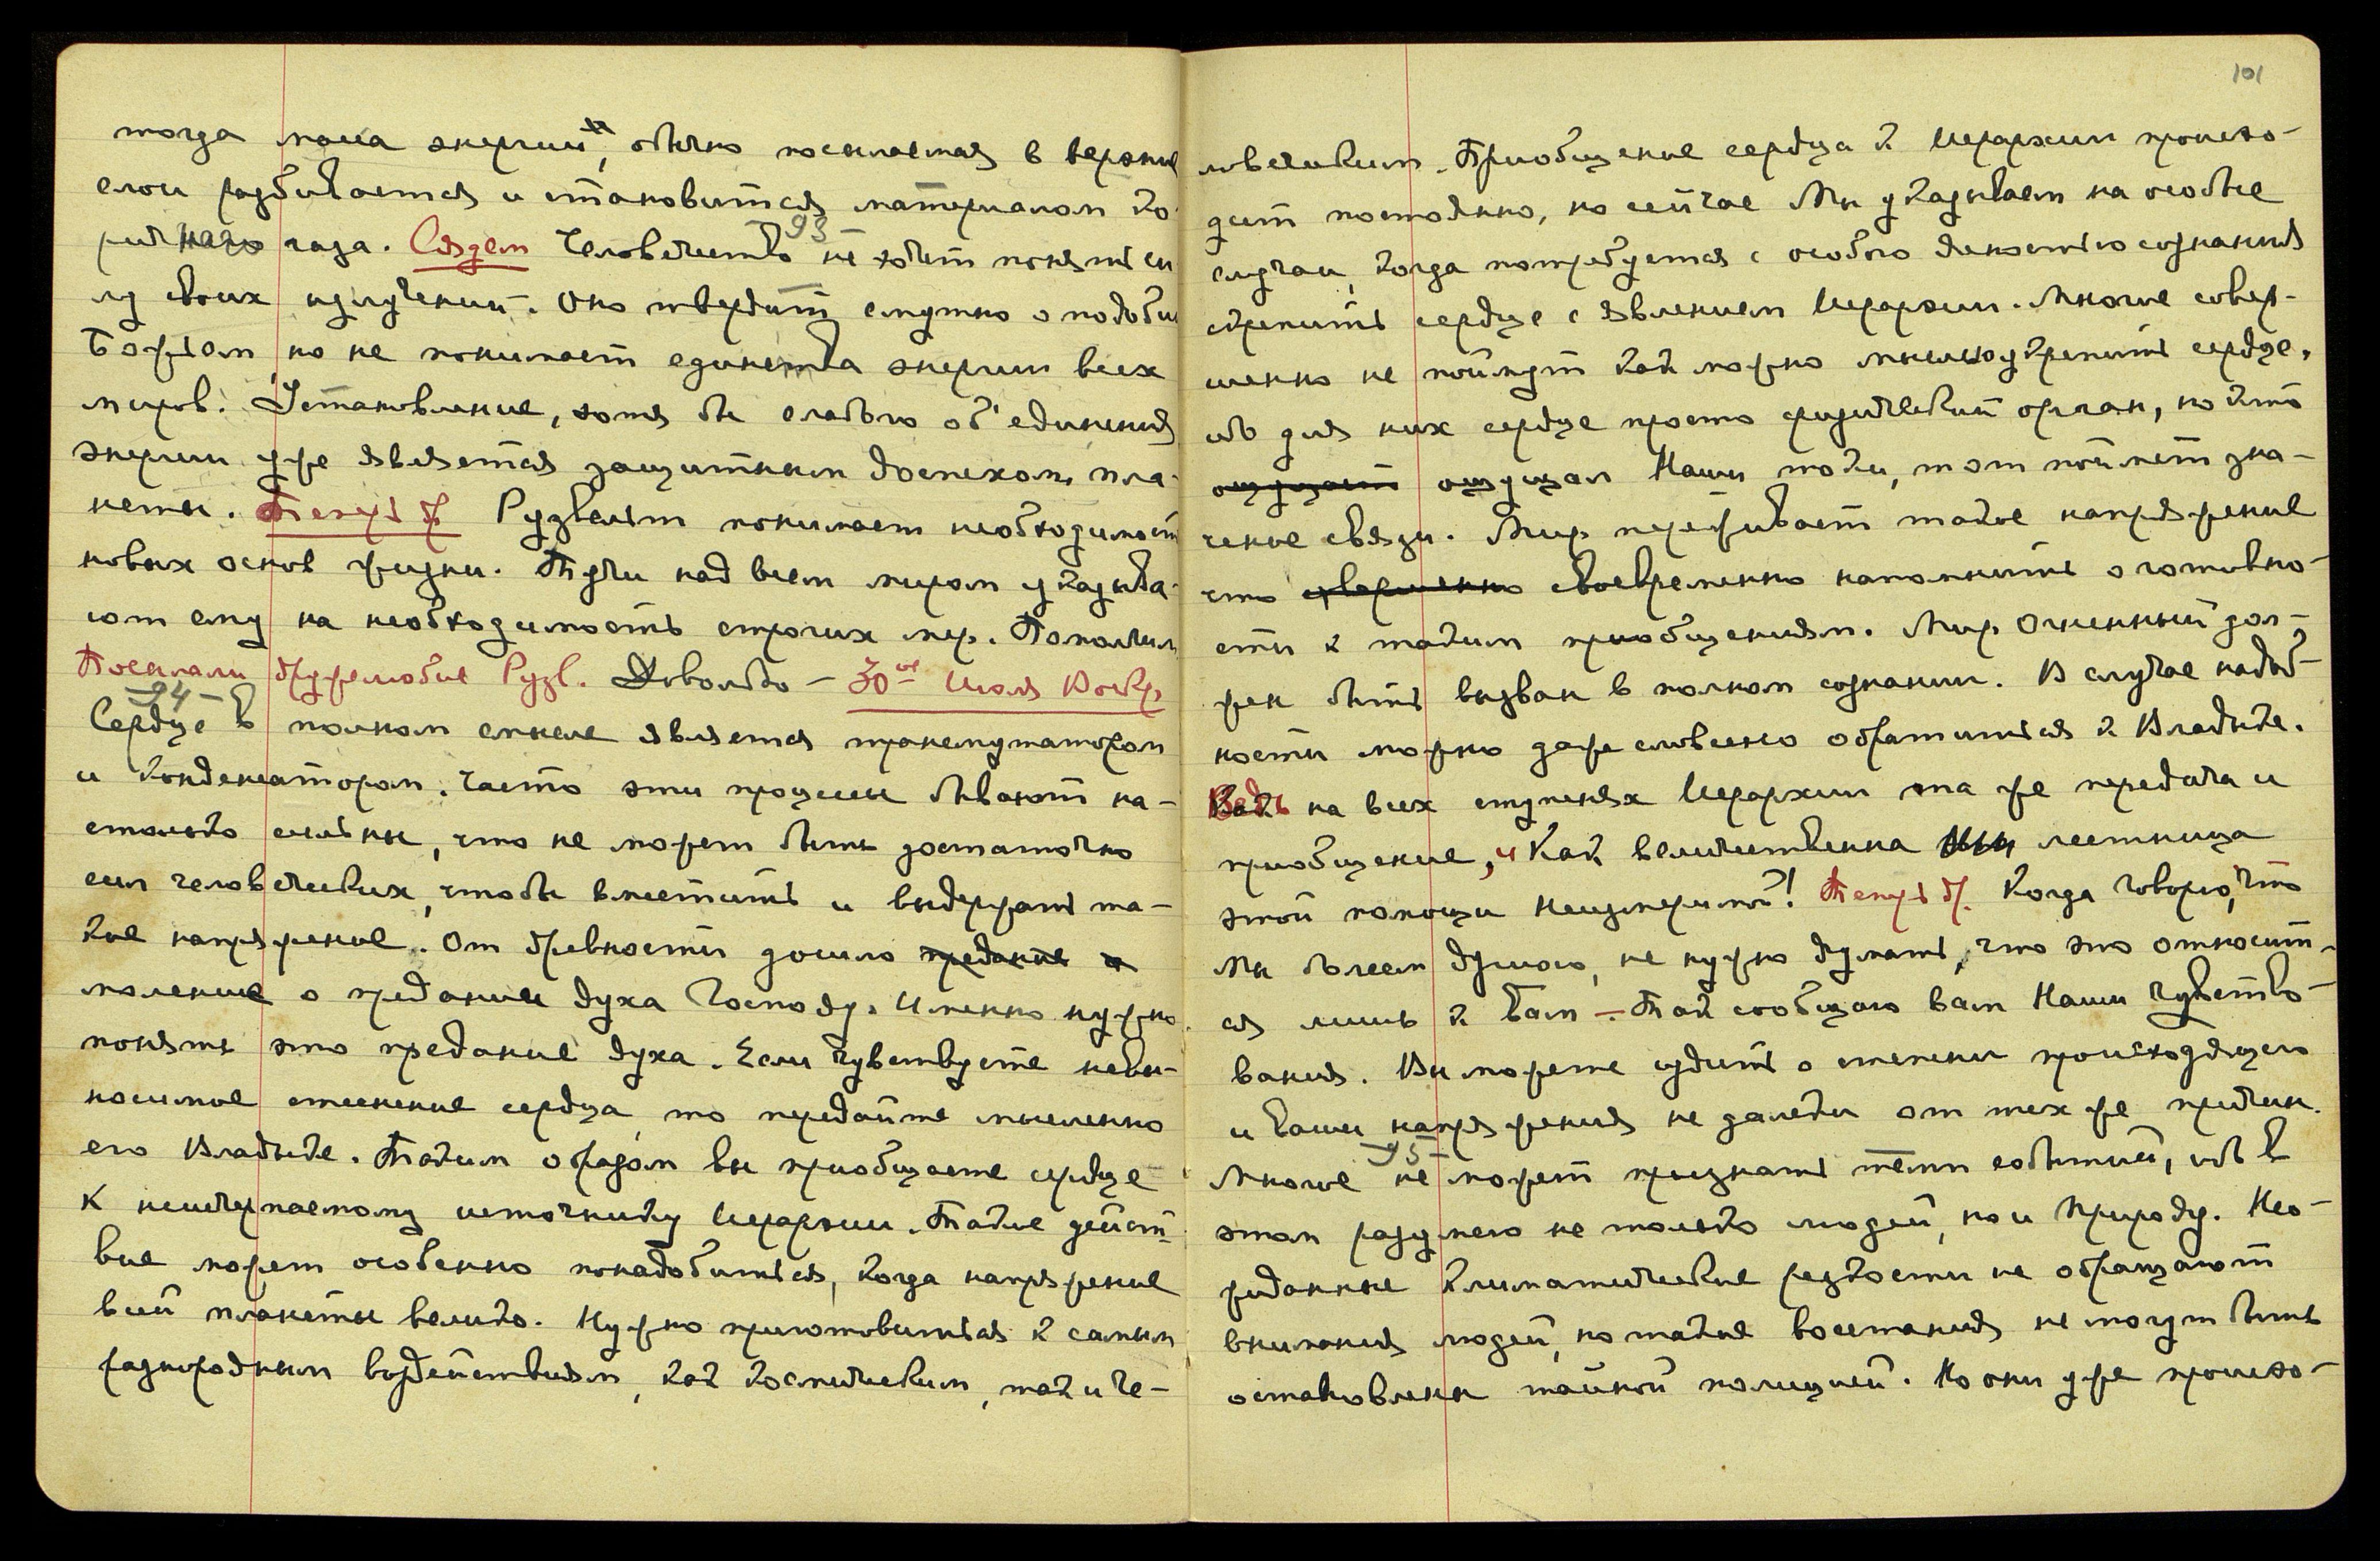 тогда масса энергий, обычно посылаемая в верхние
слои разбивается и становится материалом ко-
ричнаго газа. Сядем
- 93 -
Человечество не хочет понять си-
лу своих излучений. Оно твердит смутно о подобии
Божьем но не понимает единства энергии всех
миров. Установление, хотя бы слабого об'единения
энергии уже является защитным доспехом пла-
неты. Теперь др. Рузвельт понимает необходимость
новых основ жизни. Тучи над всем миром указыва-
ют ему на необходимость строгих мер. Помолчим
Посылали дружелюбие Рузв. Довольно — 30-ое Июля Воскр.
- 94 -
Сердце в полном смысле является трансмутатором
и конденсатором. Часто эти процессы бывают на-
столько сильны, что не может быть достаточно
сил человеческих, чтобы вместить и выдержать та-
кое напряжение. От древности дошло предание и
моление о предании духа Господу. Именно нужно
понять это предание духа. Если чувствуете невы-
носимое стеснение сердца, то передайте мысленно
его Владыке. Таким образом вы приобщаете сердце
к неисчерпаемому источнику Иерархии. Такое дейст-
вие может особенно понадобиться, когда напряжение
всей планеты велико. Нужно приготовиться к самым
разнородным воздействиям, как космическим, так и че-
101
ловеческим. Приобщение сердца к Иерархии происхо-
дит постоянно, но сейчас Мы указываем на особые
случаи, когда потребуется с особою ясностью сознания
скрепить сердце с явлением Иерархии. Многие совер-
шенно не поймут как можно мыслью укрепить сердце,
ибо для них сердце просто физический орган, но кто
ощущает ощущал Наши токи, тот поймет зна-
чение связи. Мир переживает такое напряжение
что совершенно своевременно напомнить о готовно-
сти к таким приобщениям. Мир Огненный дол-
жен быть вызван в полном сознании. В случае надоб-
ности можно даже словесно обратиться к Владыке.
Ведь на всех ступенях Иерархии та же передача и
приобщение, и как величественна лестница
этой помощи Неизмеримой! Теперь др. Когда говорю, что
Мы болеем душою, не нужно думать, что это относит-
ся лишь к вам — Так сообщаю вам Наши чувство-
вания. Вы можете судить о степени происходящего
и ваши напряжения не далеки от тех же причин.
- 95 -
Многие не может признать темп событий, ибо в
этом разумею не только людей, но и Природу. Нео-
жиданные климатические резкости не обращают
внимания людей, но такие восстания не могут быть
остановлены тайной полицией. Но они уже происхо-